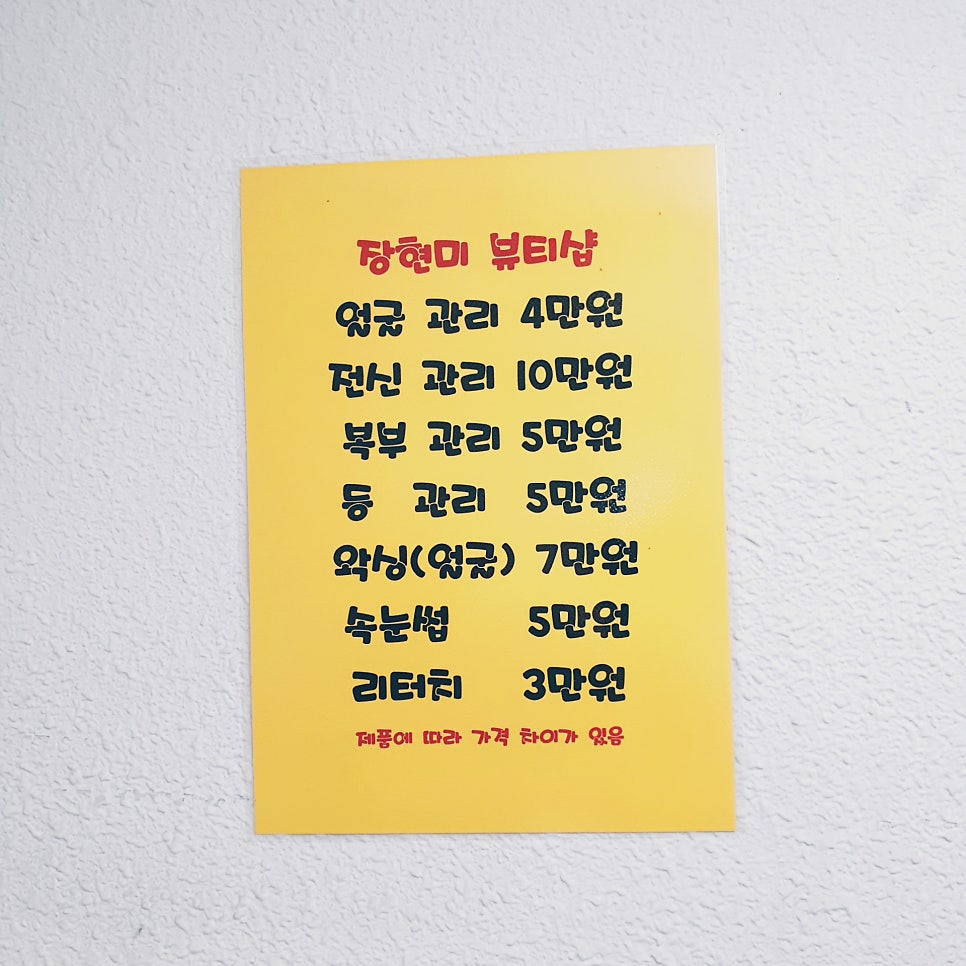 장현미 뷰티샵
얼굴 관리 4만원
전신 관리 10만원
복부 관리 5만원
등 관리 5만원
왁싱(얼굴) 7만원
속눈썹 5만원
리터치 3만원
제품에 따라 가격 차이가 있음